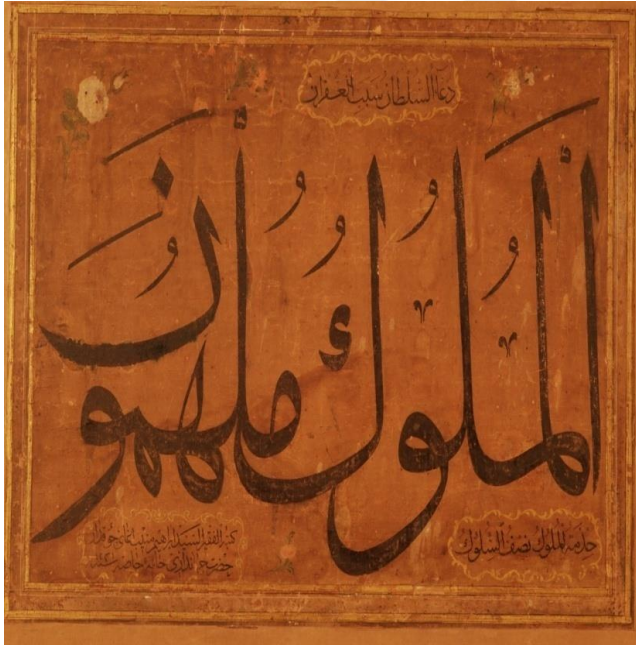 دعآ السلطان سبب الغفران
الملوك ملهمون
خدمة الملوك نصف السلوك
كتبه الفقير السيد ابراهيم